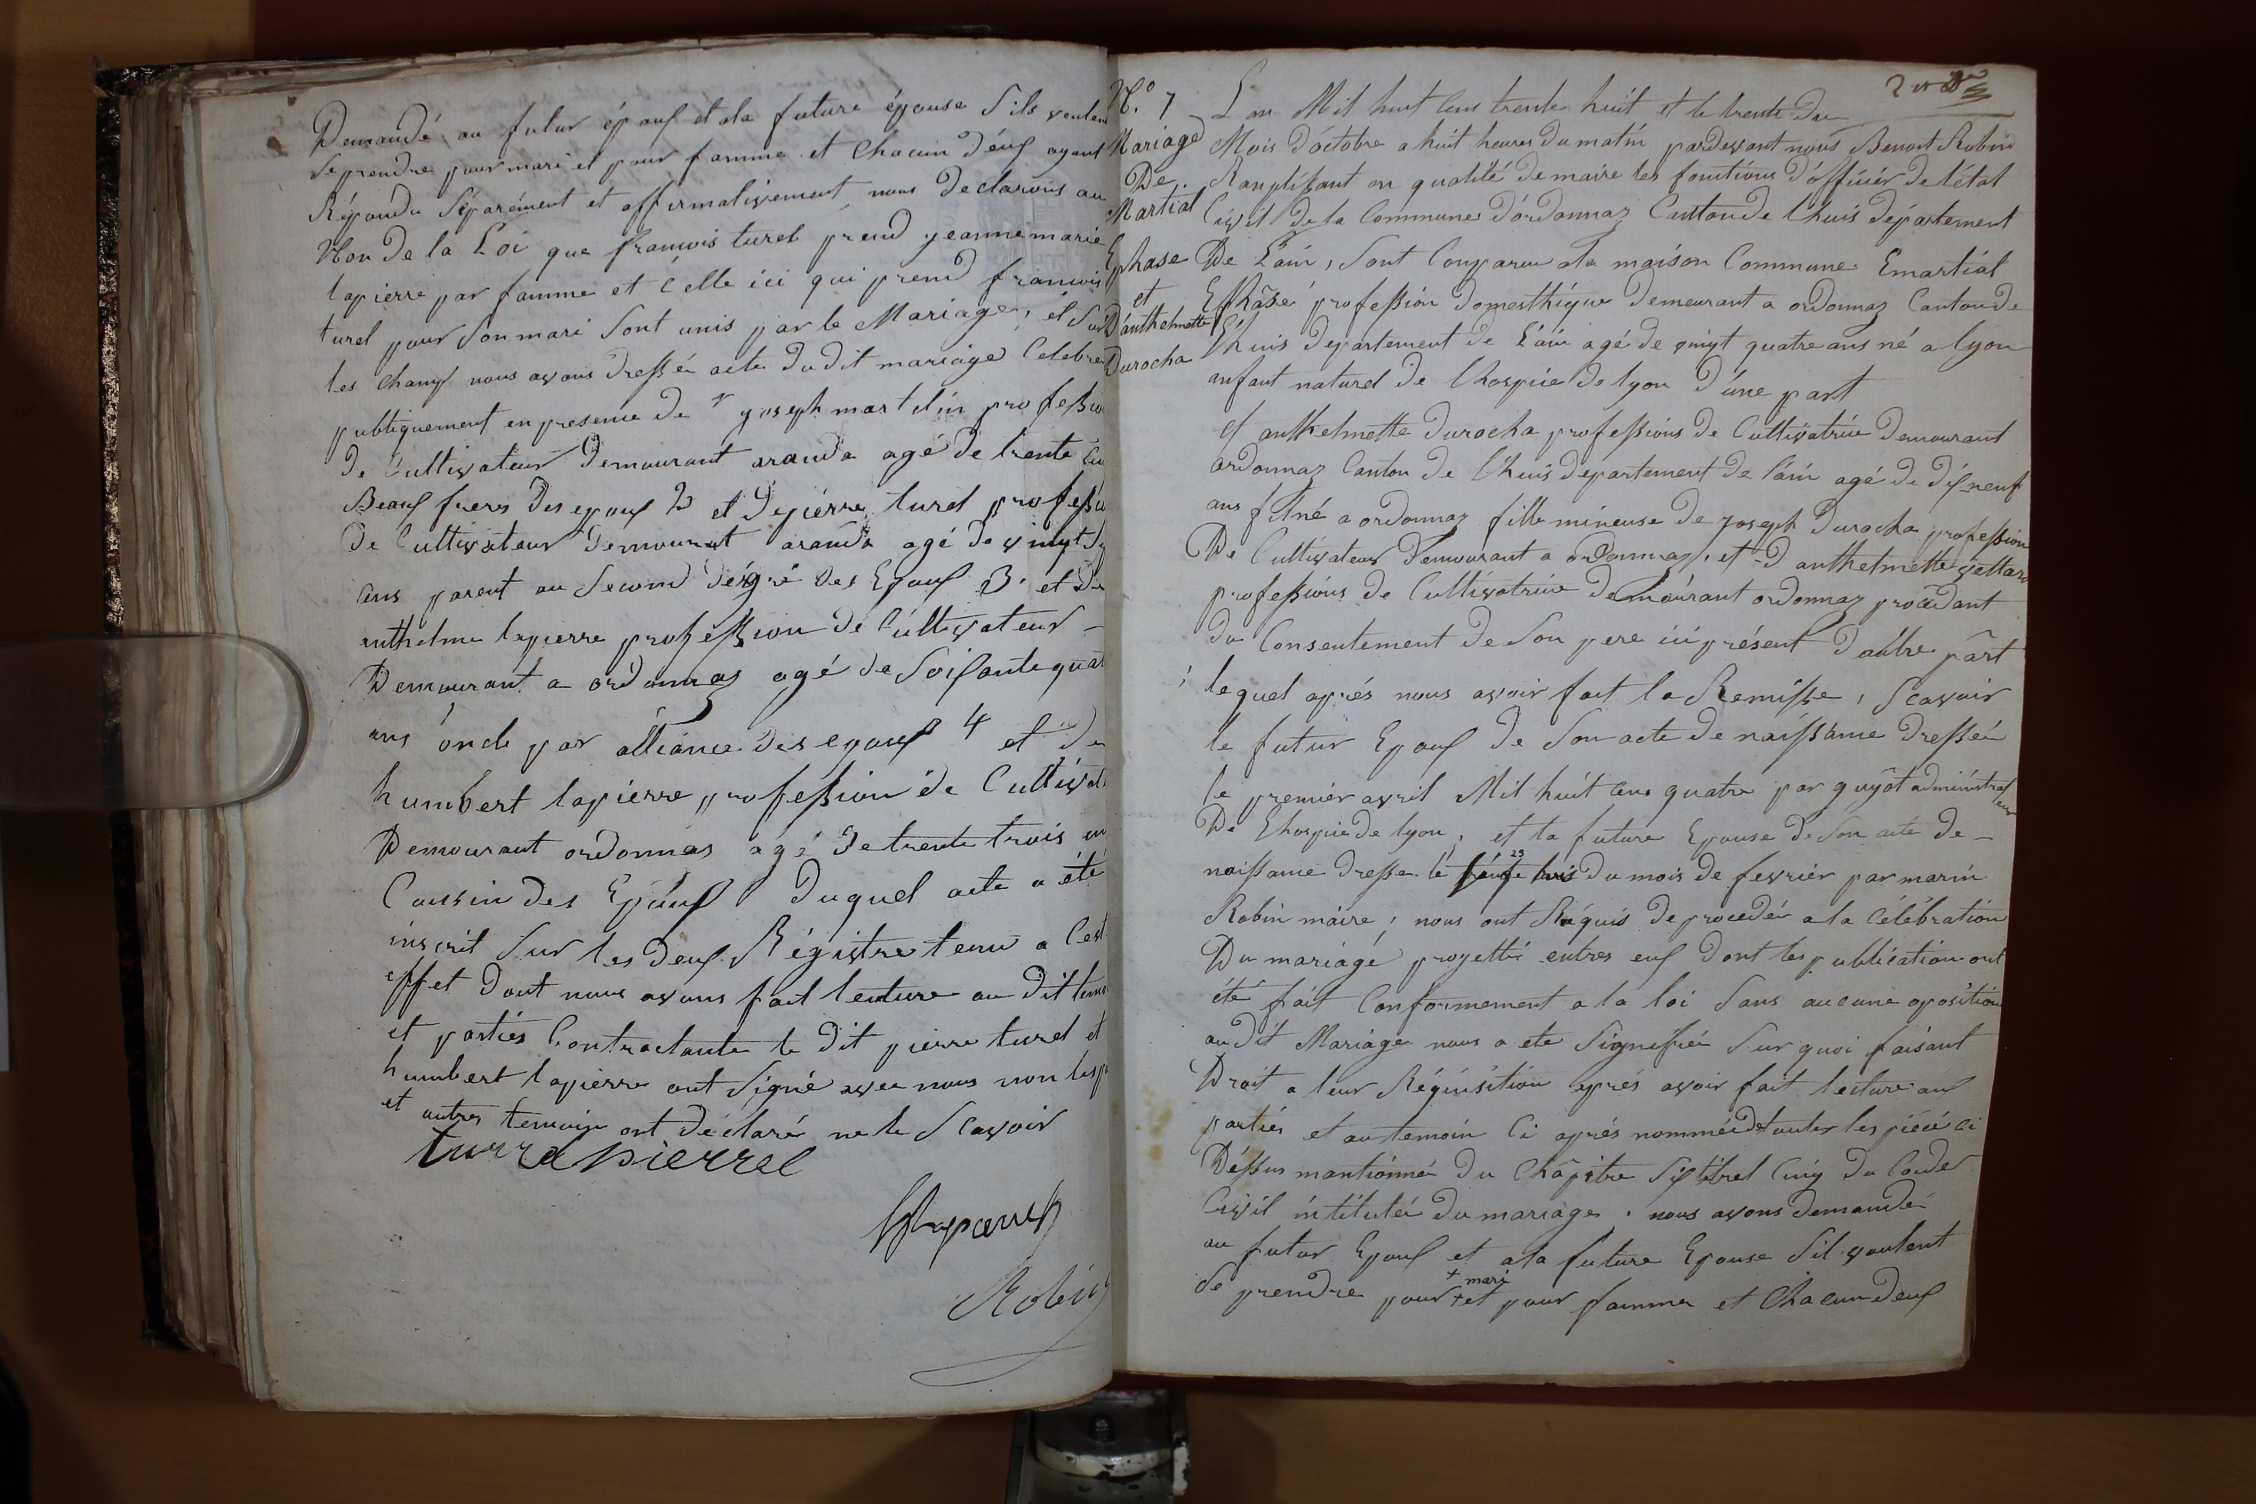 Demandé au futur épouf et ala future épouse s'ils veulen
Se prendre pour mari et pour famme et Chacun d'euf ayant
Répondu Séparément et affirmativement, nous Declarons au
Non De la Loi que françois turel prend jeanne marie
lapierre par famme et Celle ici qui prend françois
turel pour Son mari Sont unis par le Mariage, et Sur
les Champ nous avons dressé acte Du dit mariage Celebre
publiquement en presence de joseph martelin professio
De Cultivateur Demourant aranda agé de trente
Beauf frere Des epouf 2 et De pierre turel professi
De Cultivateur Demourant aranda agé de vingt
ans parent au Second Dégré Des Epouf 3. et De
anthelme lapierre profession De Cultivateur
Demourant a ordonnaz agé de Soisante quat
ans oncle par alliance Des epouf 4 et De
humbert lapierre profession de Cultivat
Demourant ordonnas agé De trente trois
Coussin Des Epouf Duquel acte a été
inscrit Sur les Deuf Régistre tenu a Cest
effet Dont nous avons fait lecture au Dit temo
et partiés Contractante le Dit pierre turel et
humbert lapierre ont Signé avec nous non les
et autres temoin ont déclaré ne le Scavoir
turel pierre
Lapierre h
Robin
N.° 7
Mariage
De
Martial
Ephase
et
D'anthelmette
Durocha
L'an Mil huit Cens trente huit et le trente Du
Mois D'octobre a huit heures Du matin pardevant nous Benoit Robin
Ranplissant en qualité De maire les fonctions D'officier De l'état
Civil De la Commune D'ordonnaz Canton de Lhuis departement
De L'ain, Sont Comparu ala maison Commune Emartial
Ephase profession Domesthique Demeurant a ordonnaz Canton de
L'huis Departement de L'ain agé de vingt quatre ans né a lyon
anfant naturel De lhospice De lyon D'une part
et anthelmette Durocha professions De Cultivatrice Demourant
ordonnaz Canton De l'huis departement De l'ain agé de Dif neuf
ans né a ordonnaz fille mineuse De joseph Durocha profession
De Cultivateur Demourant a ordonnaz, et D'anthelmette
professions De Cultivatrice Demourant ordonnaz procedant
du Consentement De Son pere ici présent D'autre part
lequel aprés nous avoir fait la Remisse, Scavoir
le futur Epouf De Son acte De naissance Dressée
le premier avril Mil huit Cens quatre par guyot administrateur
De Lhospice De lyon, et la future Epouse De Son acte De
naissance Dresse le 23 du mois De fevrier par marin
Robin maire, nous ont Réquis De proceder a la Célébration
Du mariage proyetté entres euf Dont les publication ont
été fait Conformement a la loi Sans aucune oposition
au Dit Mariage nous a ete Signifiée Sur quoi faisant
Droit a leur Réquisition aprés avoir fait lecture auf
partiés et au temoin Ci aprés nommée De toutes les piéce ci
Dessus mantionné Du Chapitre Sif titrel Cinq Du Coude
Civil intitulée Du mariage. nous avons Demandé
au futur Epouf et ala future Epouse S'il voulent
+ mari
Se prendre pour + et pour famme et Chacun Deuf